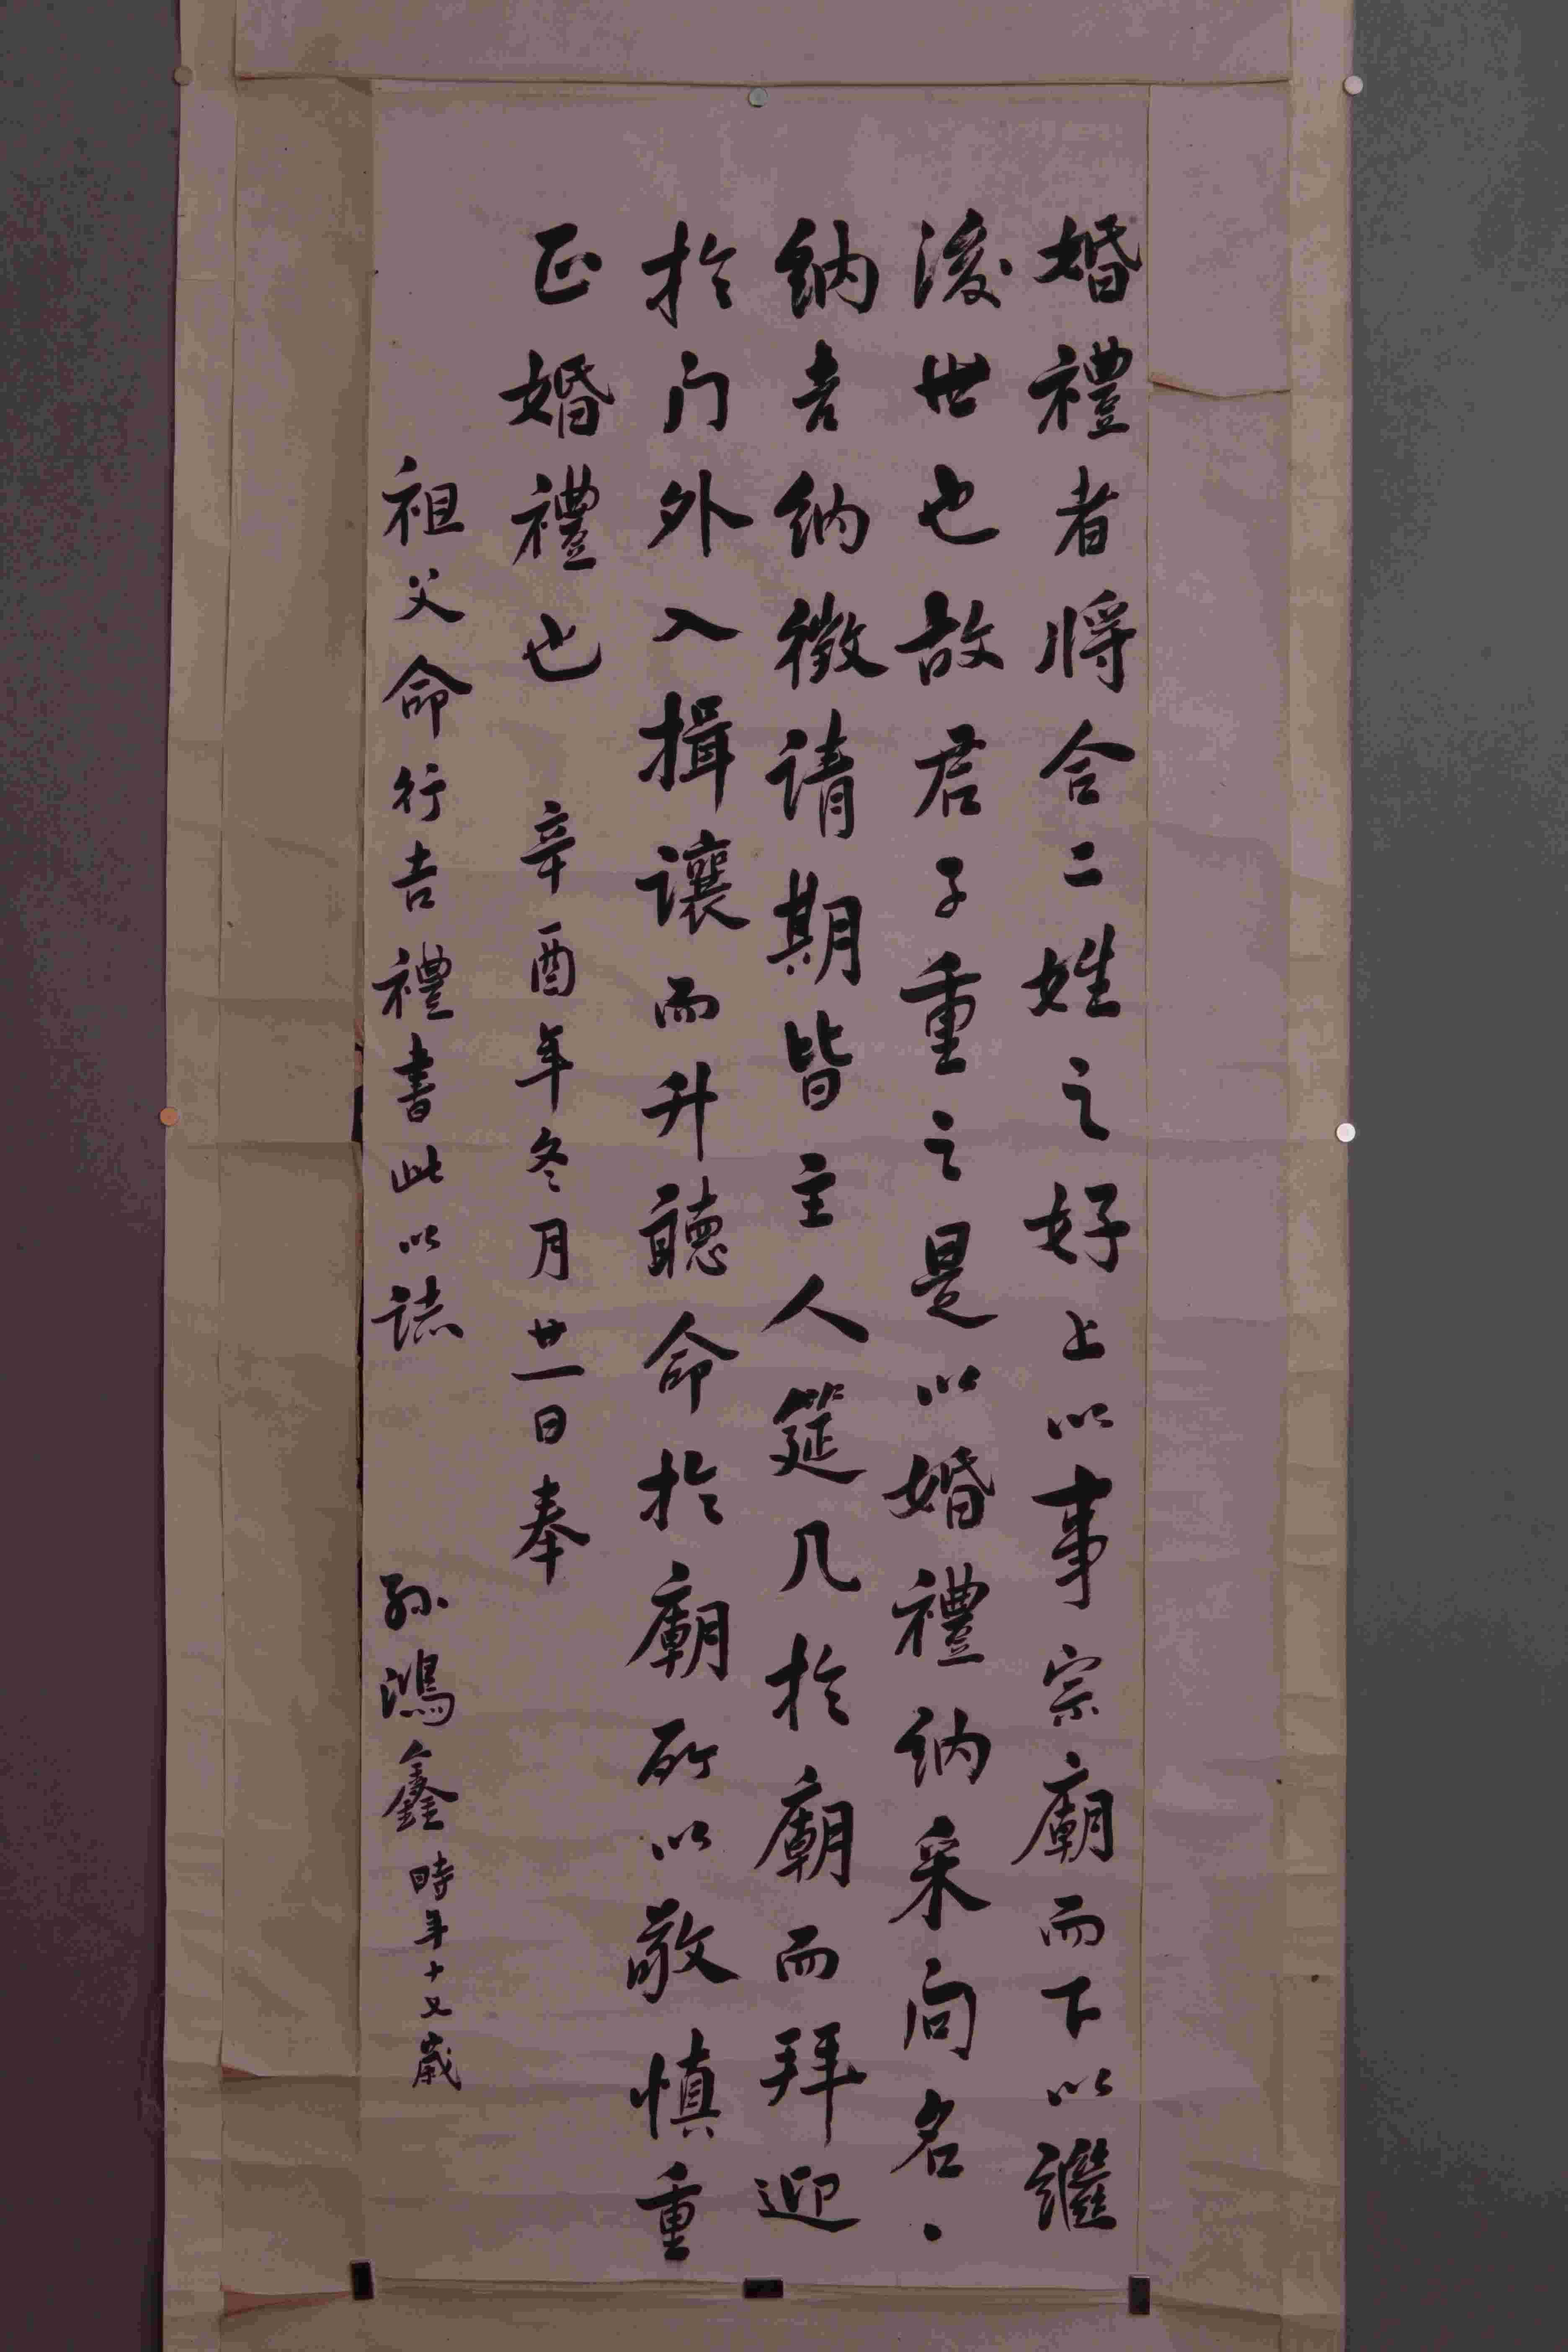 婚禮者將合二姓之好上以事宗廟而下以繼
後世也故君子重之是以婚禮納采問名、
納吉納徵請期皆主人筵几於廟而拜迎
於门外入揖讓而升聽命於廟所以敬慎重
正婚禮也 辛酉年冬月廿一日奉
祖父命行吉禮書此以誌 孫鴻鑫時年十歲